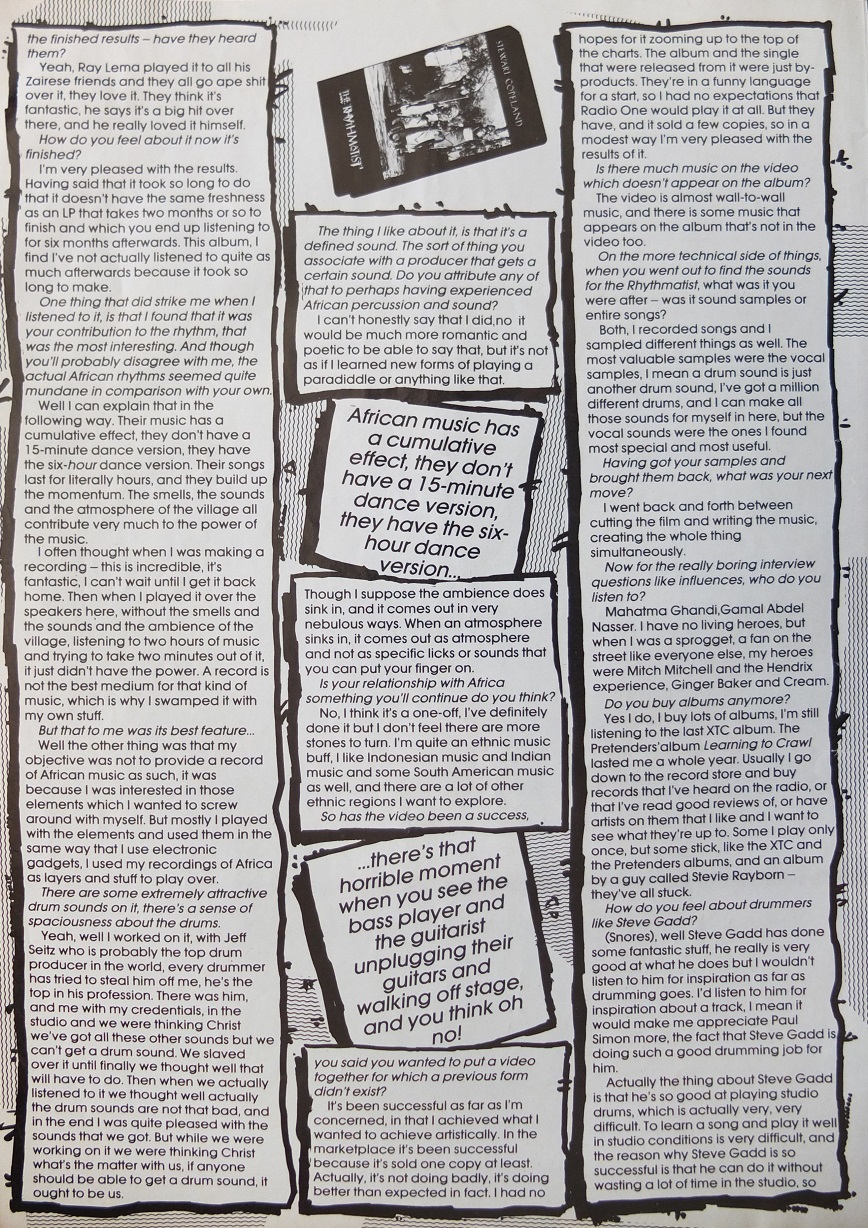 the finished results – have they heard
them?
Yeah, Ray Lema played it to all his
Zairese friends and they all go ape shit
over it, they love it. They think it's
fantastic, he says it's a big hit over
there, and he really loved it himself.
How do you feel about it now it's
finished?
I'm very pleased with the results.
Having said that it took so long to do
that it doesn't have the same freshness
as an LP that takes two months or so to
finish and which you end up listening to
for six months afterwards. This album, I
find I've not actually listened to quite as
much afterwards because it took so
long to make.
One thing that did strike me when I
listened to it, is that I found that it was
your contribution to the rhythm, that
was the most interesting. And though
you'll probably disagree with me, the
actual African rhythms seemed quite
mundane in comparison with your own.
Well I can explain that in the
following way. Their music has a
cumulative effect, they don't have a
15-minute dance version, they have
the six-hour dance version. Their songs
last for literally hours, and they build up
the momentum. The smells, the sounds
and the atmosphere of the village all
contribute very much to the power of
the music.
I often thought when I was making a
recording – this is incredible, it's
fantastic, I can't wait until I get it back
home. Then when I played it over the
speakers here, without the smells and
the sounds and the ambience of the
village, listening to two hours of music
and trying to take two minutes out of it,
it just didn't have the power. A record is
not the best medium for that kind of
music, which is why I swamped it with
my own stuff.
But that to me was its best feature...
Well the other thing was that my
objective was not to provide a record
of African music as such, it was
because I was interested in those
elements which I wanted to screw
around with myself. But mostly I played
with the elements and used them in the
same way that I use electronic
gadgets, I used my recordings of Africa
as layers and stuff to play over.
There are some extremely attractive
drum sounds on it, there's a sense of
spaciousness about the drums.
Yeah, well I worked on it, with Jeff
Seitz who is probably the top drum
producer in the world, every drummer
has tried to steal him off me, he's the
top in his profession. There was him,
and me with my credentials, in the
studio and we were thinking Christ
we've got all these other sounds but we
can't get a drum sound. We slaved
over it until finally we thought well that
will have to do. Then when we actually
listened to it we thought well actually
the drum sounds are not that bad, and
in the end I was quite pleased with the
sounds that we got. But while we were
working on it we were thinking Christ
what's the matter with us, if anyone
should be able to get a drum sound, it
ought to be us.
STEWART COPELAND
THE RHYTHMATIST
The thing I like about it, is that it's a
defined sound. The sort of thing you
associate with a producer that gets a
certain sound. Do you attribute any of
that to perhaps having experienced
African percussion and sound?
I can't honestly say that I did,no it
would be much more romantic and
poetic to be able to say that, but it's not
as if I learned new forms of playing a
paradiddle or anything like that.
African music has
a cumulative
effect, they don't
have a 15-minute
dance version,
they have the six-
hour dance
version...
Though I suppose the ambience does
sink in, and it comes out in very
nebulous ways. When an atmosphere
sinks in, it comes out as atmosphere
and not as specific licks or sounds that
you can put your finger on.
Is your relationship with Africa
something you'll continue do you think?
No, I think it's a one-off, I've definitely
done it but I don't feel there are more
stones to turn. I'm quite an ethnic music
buff, I like Indonesian music and Indian
music and some South American music
as well, and there are a lot of other
ethnic regions I want to explore.
So has the video been a success,
...there's that
horrible moment
when you see the
bass player and
the guitarist
unplugging their
guitars and
walking off stage,
and you think oh
no!
you said you wanted to put a video
together for which a previous form
didn't exist?
It's been successful as far as I'm
concerned, in that I achieved what I
wanted to achieve artistically. In the
marketplace it's been successful
because it's sold one copy at least.
Actually, it's not doing badly, it's doing
better than expected in fact. I had no
hopes for it zooming up to the top of
the charts. The album and the single
that were released from it were just by-
products. They're in a funny language
for a start, so I had no expectations that
Radio One would play it at all. But they
have, and it sold a few copies, so in a
modest way I'm very pleased with the
results of it.
Is there much music on the video
which doesn't appear on the album?
The video is almost wall-to-wall
music, and there is some music that
appears on the album that's not in the
video too.
On the more technical side of things,
when you went out to find the sounds
for the Rhythmatist, what was it you
were after – was it sound samples or
entire songs?
Both, I recorded songs and I
sampled different things as well. The
most valuable samples were the vocal
samples, I mean a drum sound is just
another drum sound, I've got a million
different drums, and I can make all
those sounds for myself in here, but the
vocal sounds were the ones I found
most special and most useful.
Having got your samples and
brought them back, what was your next
move?
I went back and forth between
cutting the film and writing the music,
creating the whole thing
simultaneously.
Now for the really boring interview
questions like influences, who do you
listen to?
Mahatma Ghandi,Gamal Abdel
Nasser. I have no living heroes, but
when I was a sprogget, a fan on the
street like everyone else, my heroes
were Mitch Mitchell and the Hendrix
experience, Ginger Baker and Cream.
Do you buy albums anymore?
Yes I do, I buy lots of albums, I'm still
listening to the last XTC album. The
Pretenders'album Learning to Crawl
lasted me a whole year. Usually I go
down to the record store and buy
records that I've heard on the radio, or
that I've read good reviews of, or have
artists on them that I like and I want to
see what they're up to. Some I play only
once, but some stick, like the XTC and
the Pretenders albums, and an album
by a guy called Stevie Rayborn –
they've all stuck.
How do you feel about drummers
like Steve Gadd?
(Snores), well Steve Gadd has done
some fantastic stuff, he really is very
good at what he does but I wouldn't
listen to him for inspiration as far as
drumming goes. I'd listen to him for
inspiration about a track, I mean it
would make me appreciate Paul
Simon more, the fact that Steve Gadd is
doing such a good drumming job for
him.
Actually the thing about Steve Gadd
is that he's so good at playing studio
drums, which is actually very, very
difficult. To learn a song and play it well
in studio conditions is very difficult, and
the reason why Steve Gadd is so
successful is that he can do it without
wasting a lot of time in the studio, so